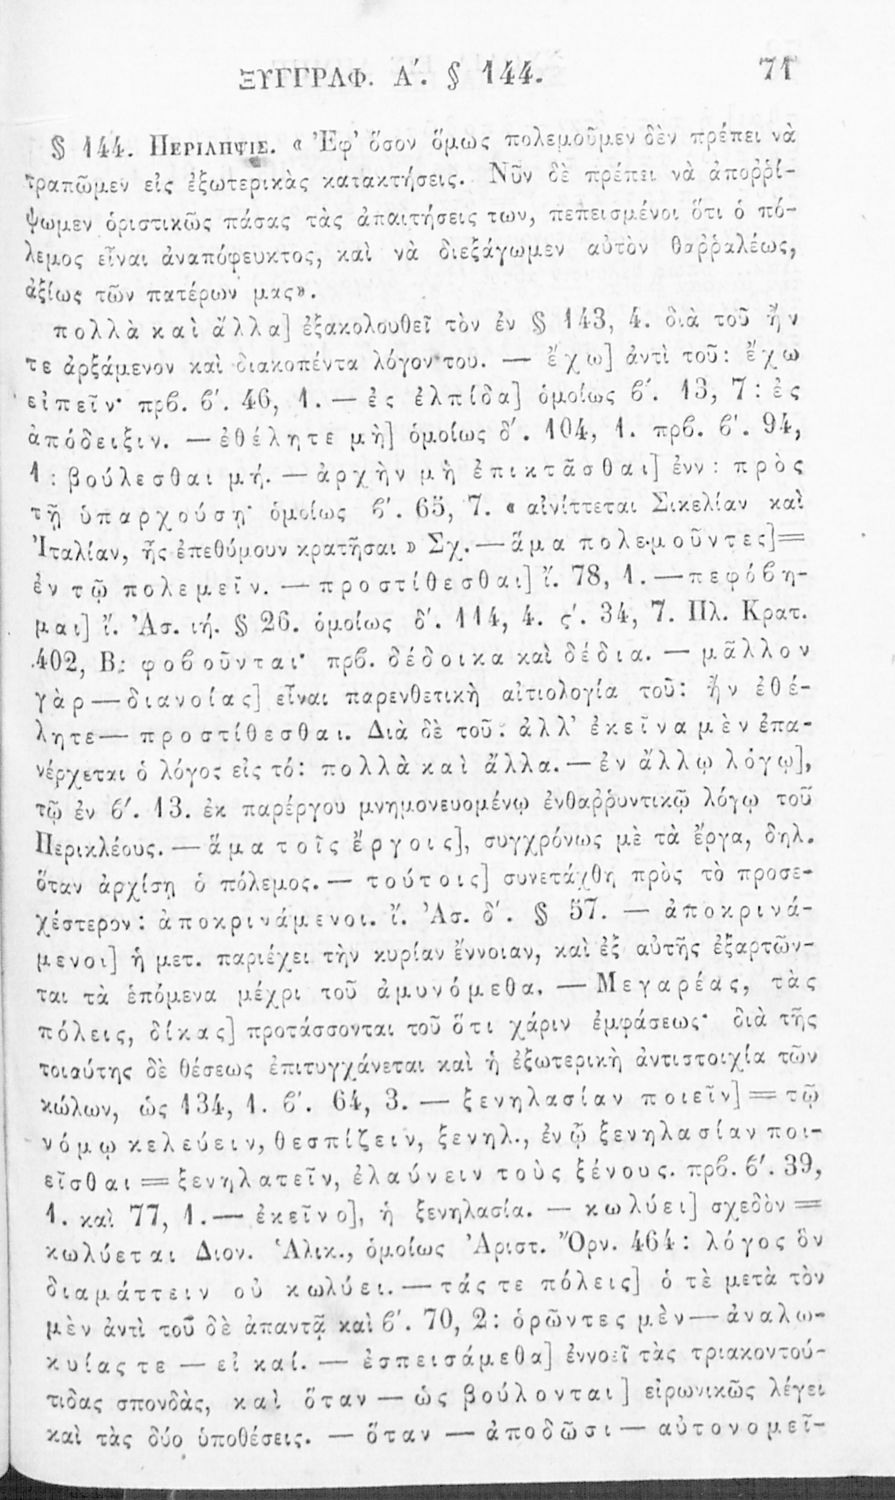 ΞΥΓΓΡΑΦ. Α΄. § 144. 71
§ 144. ΠΕΡΙΛΗΨΙΣ. « Ἐφ' ὅσον ὅμως πολεμοῦμεν δὲν πρέπει νὰ
τραπῶμεν εἰς ἐξωτερικὰς κατακτήσεις. Νῦν δὲ πρέπει νὰ ἀποῤῥί-
ψωμεν ὁριστικῶς πάσας τὰς ἀπαιτήσεις των, πεπεισμένοι ὅτι ὁ πό-
λεμος εἶναι ἀναπόφευκτος, καὶ νὰ διεξάγωμεν αὐτὸν θαῤῥαλέως,
ἀξίως τῶν πατέρων μας».
πολλὰ καὶ ἄλλα] ἐξακολουθεῖ τὸν ἐν § 143, 4. διὰ τοῦ ἤν
τε ἀρξάμενον καὶ διακοπέντα λόγον του. — ἔχω] ἀντὶ τοῦ: ἔχω
εἰπεῖν· πρβ. β΄. 46, 1. — ἐς ἐλπίδα] ὁμοίως β΄. 13, 7: ἐς
ἀπόδειξιν. — ἐθέλητε μὴ] ὁμοίως δ΄. 104, 1. πρβ. β΄. 94,
1: βούλεσθαι μή. — ἀρχὴν μὴ ἐπικτᾶσθαι] ἐνν: πρὸς
τῇ ὑπαρχούσῃ· ὁμοίως β΄. 65, 7. « αἰνίττεται Σικελίαν καὶ
Ἰταλίαν, ἧς ἐπεθύμουν κρατῆσαι » Σχ. — ἅμα πολεμοῦντες]=
ἐν τῷ πολεμεῖν. — προστίθεσθαι] ἴ. 78, 1. — πεφόβη-
μαι] ἴ. Ἀσ. ιή. § 26. ὁμοίως δ΄. 114, 4. ς΄. 34, 7. Πλ. Κρατ.
402, Β: φοβοῦνται· πρβ. δέδοικα καὶ δέδια. — μᾶλλον
γὰρ — διανοίας] εἶναι παρενθετικὴ αἰτιολογία τοῦ: ἤν ἐθέ-
λητε — προστίθεσθαι. Διὰ δὲ τοῦ: ἀλλ' ἐκεῖνα μὲν ἐπα-
νέρχεται ὁ λόγος εἰς τό: πολλὰ καὶ ἄλλα. — ἐν ἄλλῳ λόγῳ],
τῷ ἐν β΄. 13. ἐκ παρέργου μνημονευομένῳ ἐνθαῤῥυντικῷ λόγῳ τοῦ
Περικλέους. — ἅμα τοῖς ἔργοις], συγχρόνως μὲ τὰ ἔργα, δηλ.
ὅταν ἀρχίσῃ ὁ πόλεμος. — τούτοις] συνετάχθη πρὸς τὸ προσε-
χέστερον: ἀποκρινάμενοι. ἴ. Ἀσ. δ΄. § 57. — ἀποκρινά-
μενοι] ἡ μετ. παριέχει τὴν κυρίαν ἔννοιαν, καὶ ἐξ αὐτῆς ἐξαρτῶν-
ται τὰ ἑπόμενα μέχρι τοῦ ἀμυνόμεθα. — Μεγαρέας, τὰς
πόλεις, δίκας] προτάσσονται τοῦ ὅτι χάριν ἐμφάσεως· διὰ τῆς
τοιαύτης δὲ θέσεως ἐπιτυγχάνεται καὶ ἡ ἐξωτερικὴ ἀντιστοιχία τῶν
κώλων, ὡς 134, 1. β΄. 64, 3. — ξενηλασίαν ποιεῖν] = τῷ
νόμῳ κελεύειν, θεσπίζειν, ξενηλ., ἐν ᾧ ξενηλασίαν ποι-
εῖσθαι = ξενηλατεῖν, ἐλαύνειν τοὺς ξένους. πρβ. β΄. 39,
1. καὶ 77, 1. — ἐκεῖνο], ἡ ξενηλασία. — κωλύει] σχεδὸν =
κωλύεται Διον. Ἁλικ., ὁμοίως Ἀριστ. Ὄρν. 464: λόγος ὃν
διαμάττειν οὐ κωλύει. — τάς τε πόλεις] ὁ τὲ μετὰ τὸν
μὲν ἀντὶ τοῦ δὲ ἀπαντᾷ καὶ β΄. 70, 2: ὁρῶντες μὲν — ἀναλω-
κυίας τε — εἰ καί. — ἐσπεισάμεθα] ἐννοεῖ τὰς τριακοντού-
τιδας σπονδὰς, καὶ ὅταν — ὡς βούλονται] εἰρωνικῶς λέγει
καὶ τὰς δύο ὑποθέσεις. — ὅταν — ἀποδῶσι — αὐτονομεῖ-